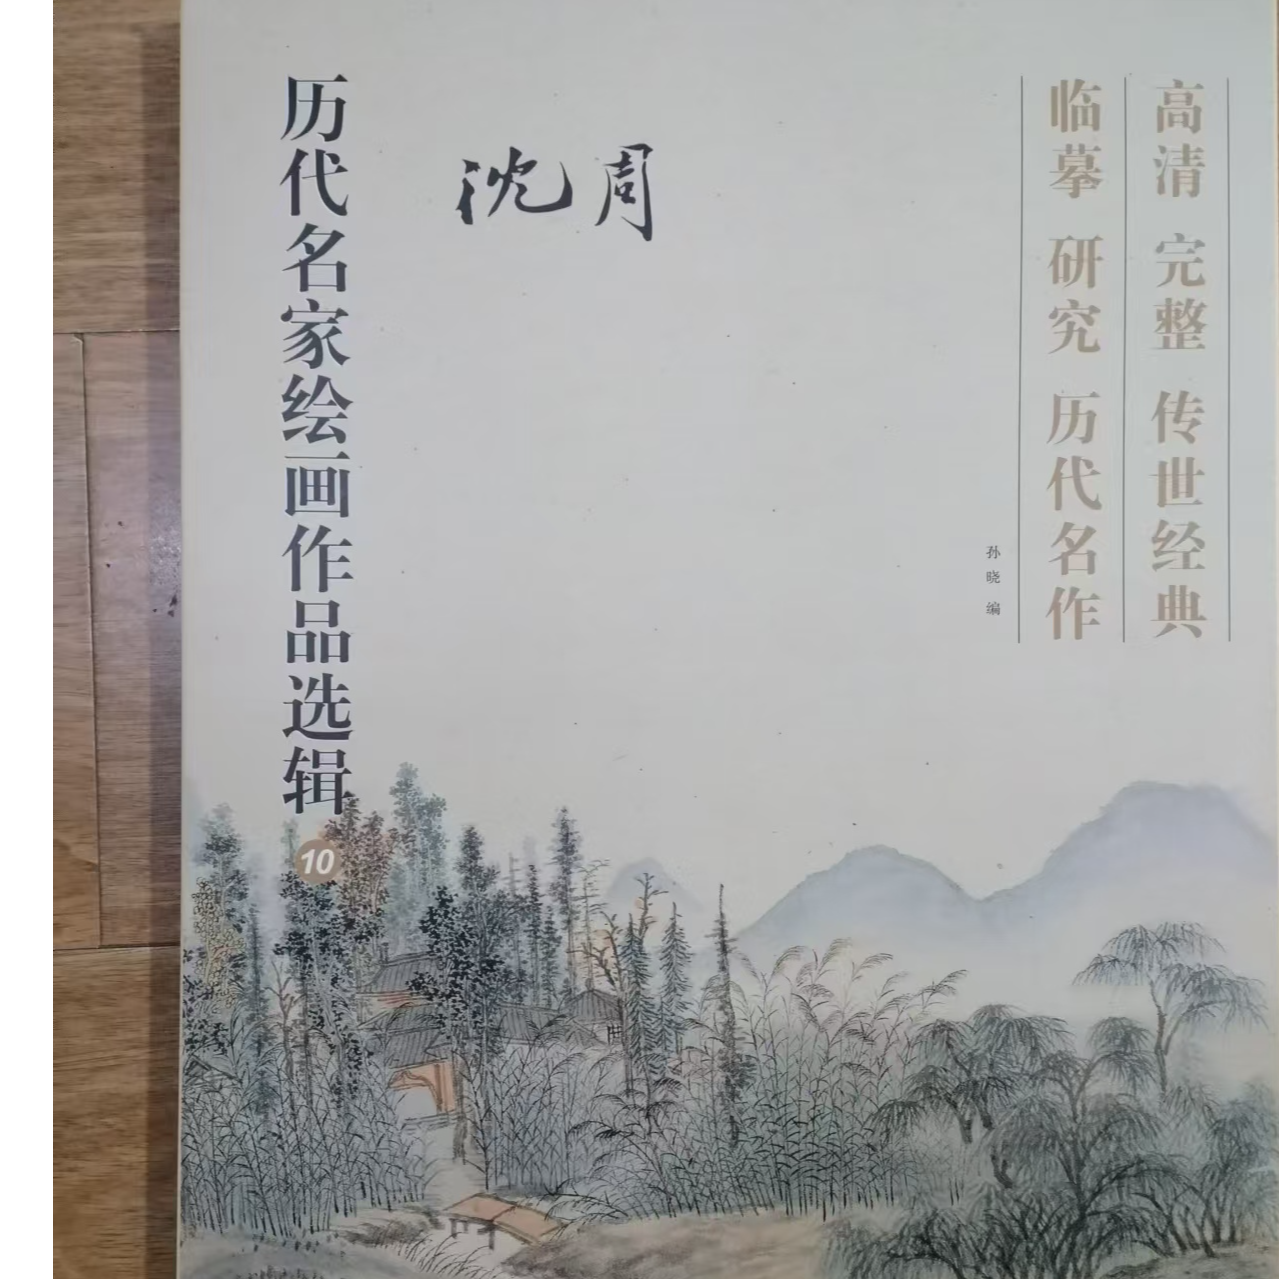 高清 完整 传世经典
临摹 研究 历代名作
孙晓 编
沈周
历代名家绘画作品选辑
10